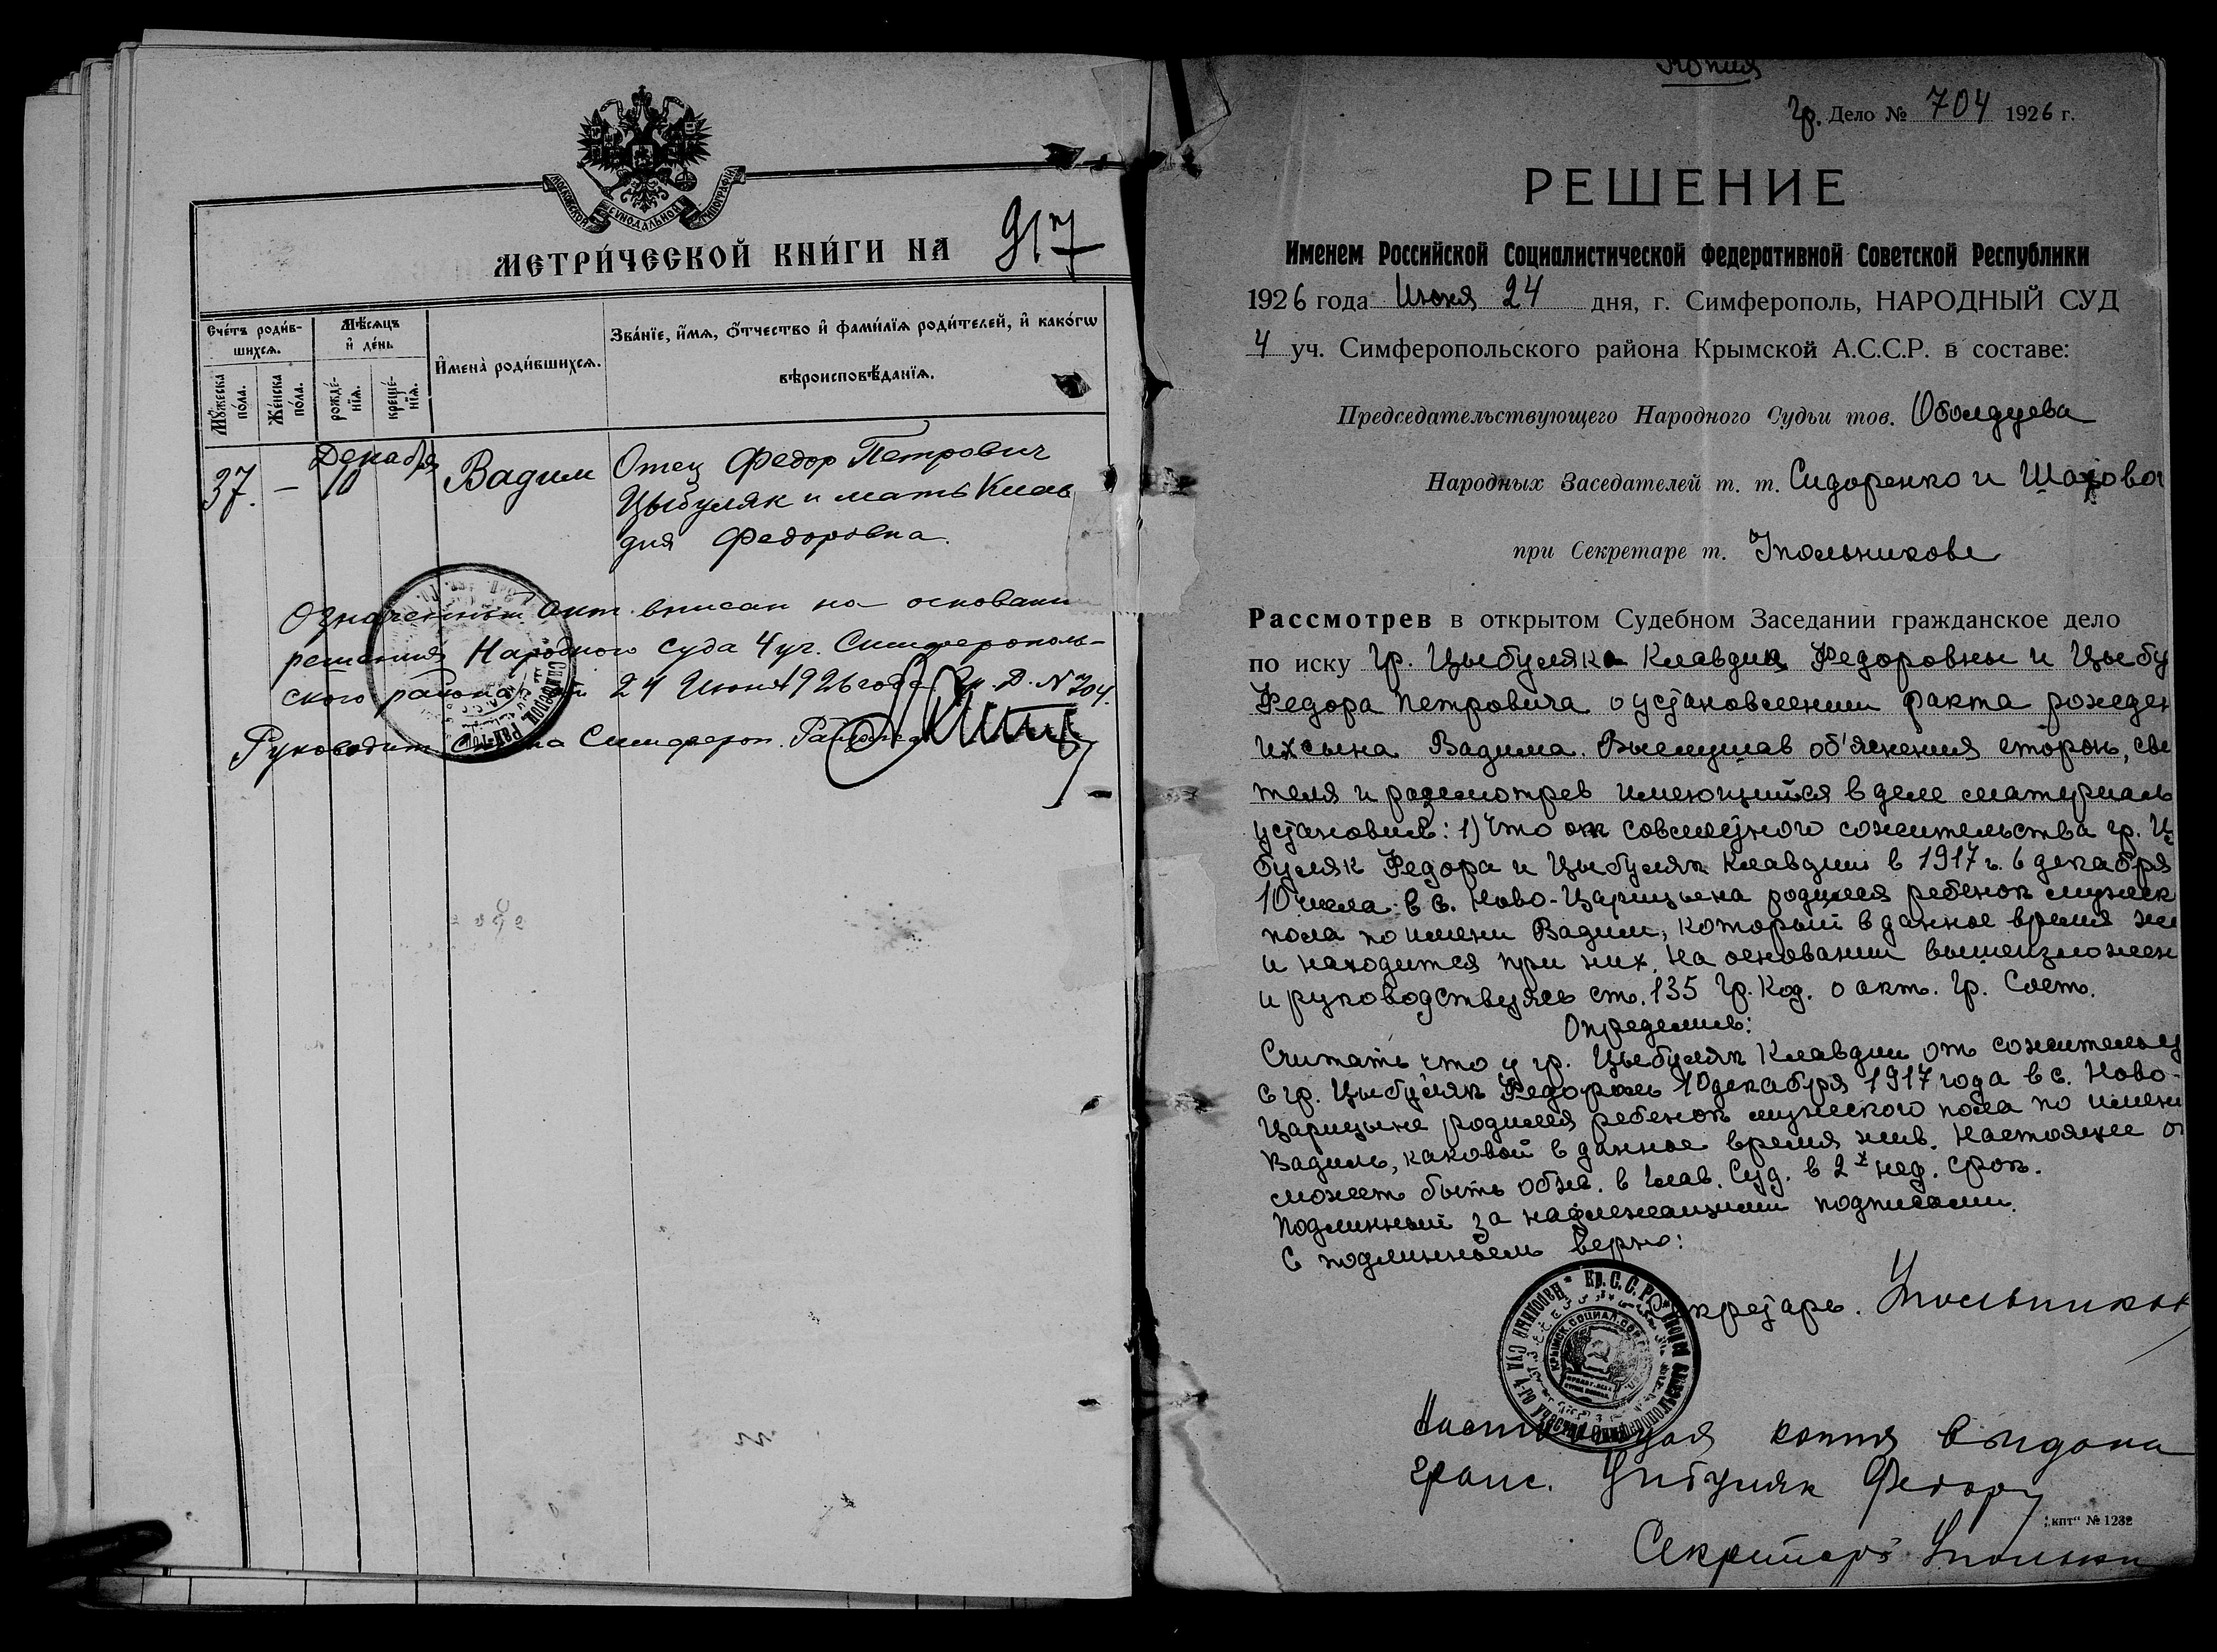 МОСКОВСКОЙ СѴНОДАЛЬНОЙ ТИПОГРАФІИ
МЕТРИ́ЧЕСКОЙ КНИ́ГИ НА 917
Сче́тъ роди́в-
шихсѧ.
Мѣ́сѧцъ
и҆ де́нь
И҆мена̀ роди́вшихсѧ.
Зва́нїе, и҆́мѧ, ѻ҆́тчество и҆ фами́лїѧ роди́телей, и҆ како́гѡ
вѣроисповѣ́данїѧ.
Мꙋ́жеска по́ла.
Же́нска по́ла.
рожде́-нїѧ.
креще́-нїѧ.
37. — Декабря 10 Вадим Отец Федор Петрович
Цыбуляк и мать Клав
дия Федоровна.
Означенный акт вписан на основани
решения Народного суда 4 уч. Симферополь-
ского района от 24 Июня 1926 года Гр. Д. N 704.
Руководит. Симфероп.
Копия
Гр. Дело № 704 1926 г.
РЕШЕНИЕ
Именем Российской Социалистической Федеративной Советской Республики
1926 года Июня 24 дня, г. Симферополь, НАРОДНЫЙ СУД
4 уч. Симферопольского района Крымской А.С.С.Р. в составе:
Председательствующего Народного Судьи тов. Оболдуева
Народных Заседателей т. т. Сидоренко и Шахова
при Секретаре т. Упольникове
Рассмотрев в открытом Судебном Заседании гражданское дело
по иску Гр. Цыбуляка Клавдия Федоровны и Цыбу
Федора Петровича о установлении факта рожден
их сына Вадима. Выслушав об'яснения сторон, сви
теля и разсмотрев имеющийся в деле материаль
установил: 1) Что от совместного сожительства гр. Ц
буляк Федора и Цыбуляк Клавдии в 1917 г. 6 декабря
10 числа в с. Ново-Царицына родился ребенок мужск
пола по имени Вадим, который в данное время жи
и находится при них. На основании вышеизложен
и руководствуясь ст. 135 Гр. Код. о акт. Гр. Сост.
Определил:
Считать что у гр. Цыбуляк Клавдии от сожительц
с гр. Цыбуляк Федором 10 декабря 1917 года в с. Ново-
Царицыне родился ребенок мужского пола по имени
Вадим, каковой в данное время жив. Настоящее о
может быть обж. в Глав. Суд. в 2х нед. срок.
Подлинный за надлежащими подписами.
С подлинным верно:
Секретарь. Упольников
НАРОДНЫЙ СУД 4-го УЧАСТКА СИМФЕРОПОЛЬСКОГО РАЙОНА Кр. С. С. Р.
Настоящая копия выдана
граж. Цибуляк Федору
„кпт“ № 1232
Секретарь Упольни